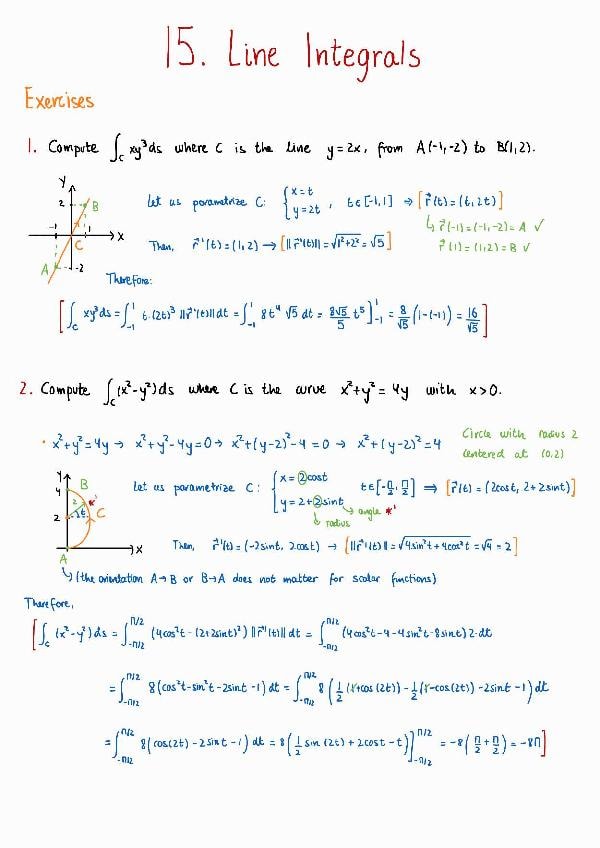 15. Line Integrals
Exercises
1. Compute ∫_C xy³ds where C is the line y=2x, from A(-1,-2) to B(1,2).
Y
2
B
-1
1
X
C
A
-2
Let us parametrize C: { x=t y=2t , t∈[-1,1] → [r⃗(t)=(t,2t)]
↳ r⃗(-1)=(-1,-2)=A ✓
r⃗(1)=(1,2)=B ✓
Then, r⃗'(t)=(1,2) → [||r⃗'(t)||=√(1²+2²)=√5]
Therefore:
[∫_C xy³ds = ∫_{-1}^{1} t·(2t)³ ||r⃗'(t)||dt = ∫_{-1}^{1} 8t⁴ √5 dt = 8√5/5 t⁵]_{-1}^{1} = 8/√5 (1-(-1)) = 16/√5]
2. Compute ∫_C (x²-y²)ds where C is the curve x²+y²=4y with x>0.
• x²+y²=4y → x²+y²-4y=0 → x²+(y-2)²-4=0 → x²+(y-2)²=4
Circle with radius 2
centered at (0,2)
Y
4
B
2
*'
t
C
2
A
X
Let us parametrize C: { x=2cost y=2+2sint t∈[-π/2, π/2] ⇒ [r⃗(t)=(2cost, 2+2sint)]
angle *'
radius
Then, r⃗'(t)=(-2sint, 2cost) → [||r⃗'(t)||=√(4sin²t+4cos²t)=√4=2]
↳ (the orientation A→B or B→A does not matter for scalar functions)
Therefore,
[∫_C (x²-y²)ds = ∫_{-π/2}^{π/2} (4cos²t-(2+2sint)²) ||r⃗'(t)||dt = ∫_{-π/2}^{π/2} (4cos²t-4-4sin²t-8sint)2·dt
= ∫_{-π/2}^{π/2} 8(cos²t-sin²t-2sint-1)dt = ∫_{-π/2}^{π/2} 8(1/2(1+cos(2t))-1/2(1-cos(2t))-2sint-1)dt
= ∫_{-π/2}^{π/2} 8(cos(2t)-2sint-1)dt = 8(1/2 sin(2t)+2cost-t)]_{-π/2}^{π/2} = -8(π/2+π/2) = -8π]